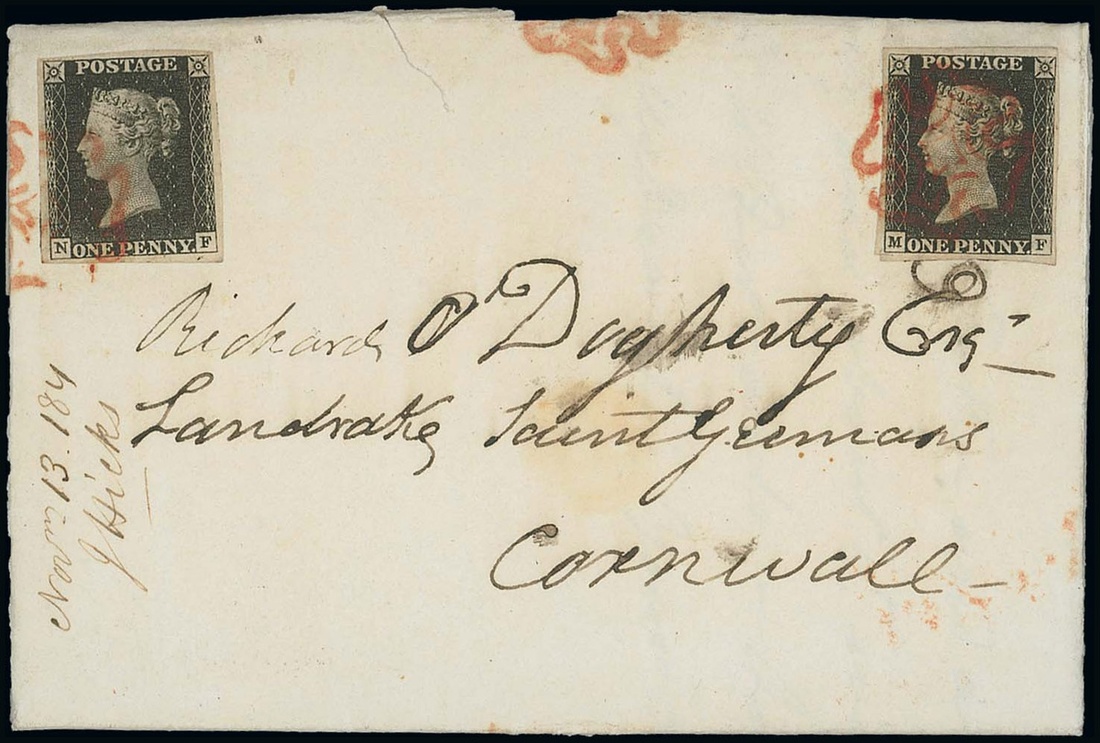 POSTAGE
N ONE PENNY. F
POSTAGE
M ONE PENNY. F
Richard O'Dogherty Esqr
Landrake Saint Germans
Cornwall
Novm 13. 184
J Hicks